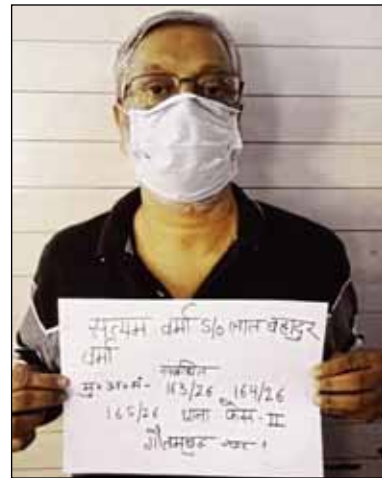 सत्यम वर्मा S/o लाल बहादुर
वर्मा
सम्बंधित
मु०अ०सं०- 163/26, 164/26
165/26 थाना फेस-II
गौतमबुद्ध नगर।